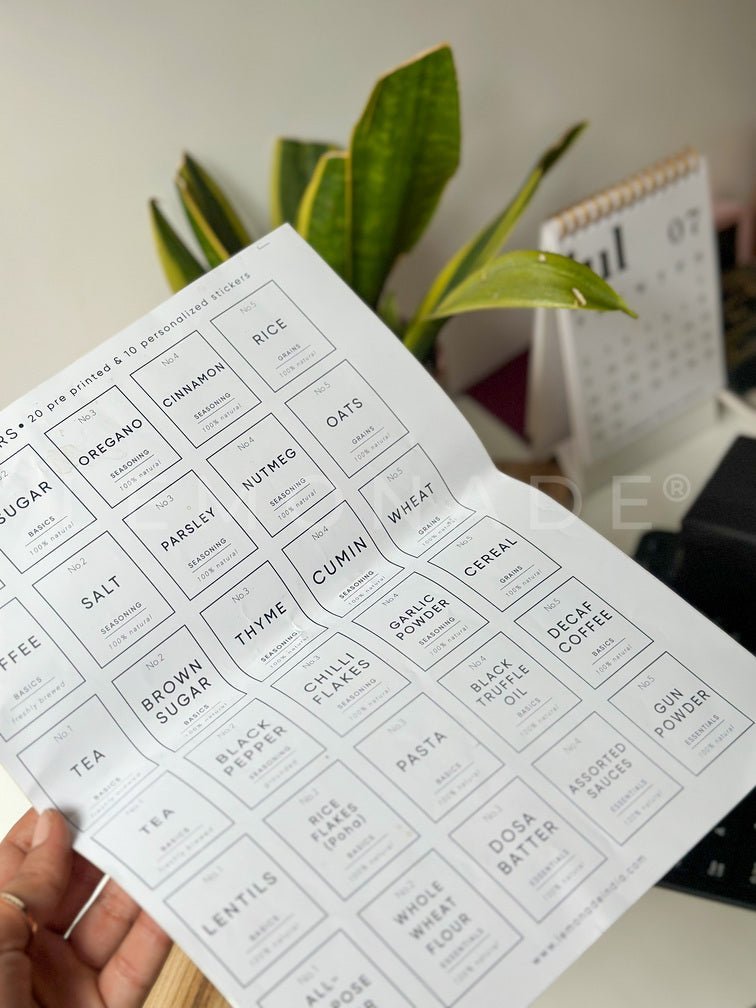 RS • 20 pre printed & 10 personalized stickers
SUGAR
BASICS
100% natural
No.3
OREGANO
SEASONING
100% natural
No.4
CINNAMON
SEASONING
100% natural
No.5
RICE
GRAINS
100% natural
FFEE
BASICS
freshly brewed
No.2
SALT
SEASONING
100% natural
No.3
PARSLEY
SEASONING
100% natural
No.4
NUTMEG
SEASONING
100% natural
No.5
OATS
GRAINS
100% natural
No.1
TEA
BASICS
freshly brewed
No.2
BROWN
SUGAR
BASICS
100% natural
No.3
THYME
SEASONING
100% natural
No.4
CUMIN
SEASONING
100% natural
No.5
WHEAT
GRAINS
100% natural
No.1
TEA
BASICS
freshly brewed
No.2
BLACK
PEPPER
SEASONING
grounded
No.3
CHILLI
FLAKES
SEASONING
100% natural
No.4
GARLIC
POWDER
SEASONING
100% natural
No.5
CEREAL
GRAINS
100% natural
No.1
LENTILS
BASICS
100% natural
No.2
RICE
FLAKES
(Poha)
BASICS
100% natural
No.3
PASTA
BASICS
100% natural
No.4
BLACK
TRUFFLE
OIL
BASICS
100% natural
No.5
DECAF
COFFEE
BASICS
100% natural
No.1
ALL-
POSE
No.2
WHOLE
WHEAT
FLOUR
ESSENTIALS
100% natural
No.3
DOSA
BATTER
ESSENTIALS
100% natural
No.4
ASSORTED
SAUCES
ESSENTIALS
100% natural
No.5
GUN
POWDER
ESSENTIALS
100% natural
www.lemonadeindia.com
Jul 07
LEMONADE®